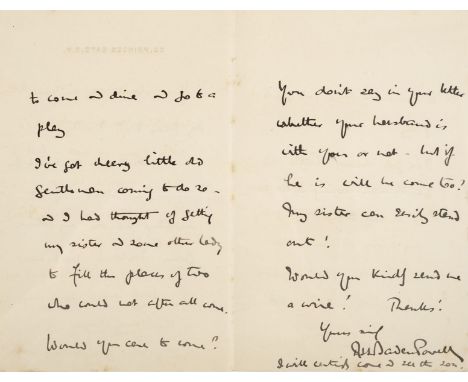 to come and dine and go to a
play
I've got deevy little old
gentlemen coming to do so -
and I had thought of getting
my sister and some other lady
to fill the places of two
who could not after all come.
Would you care to come?
You don't say in your letter
whether your husband is
with you or not - but if
he is will he come too?
My sister can easily stand
out!
Would you kindly send me
a wire? Thanks!
Yours
R.S.S. Baden Powell
I will certainly come and see the zoo.